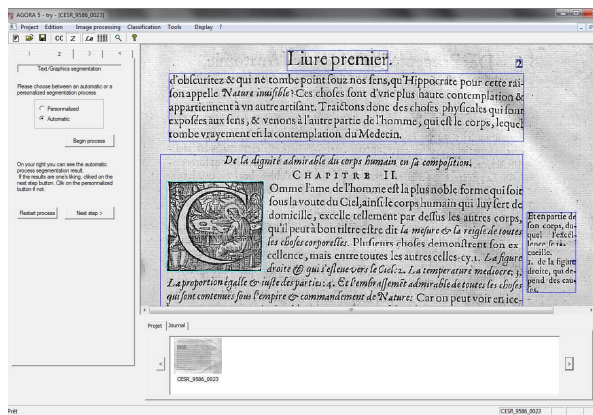 AGORA 5 - try - [CESR_9586_0023]
Project Edition Image processing Classification Tools Display ?
CC Z La ?
1 2 3 4
Text/Graphics segmentation
Please choose between an automatic or a
personalized segmentation process
Personnalized
Automatic
Begin process
On your right you can see the automatic
process segmentation result.
If the results are one's liking, cliked on the
next step button. Clik on the personnalized
button if not.
Restart process Next step >
Liure premier. 2
d'obscuritez & qui ne tombe point souz nos sens, qu'Hippocrate pour cette rai-
son appelle Nature inuisible? Ces choses sont d'vne plus haute contemplation &
appartiennent à vn autre artisant. Traictons donc des choses physicales qui sont
exposées aux sens, & venons à l'autre partie de l'homme, qui est le corps, lequel
tombe vrayement en la contemplation du Medecin.
De la dignité admirable du corps humain en sa composition.
CHAPITRE II.
COmme l'ame de l'homme est la plus noble forme qui soit
sous la voute du Ciel, ainsi le corps humain qui luy sert de
domicille, excelle tellement par dessus les autres corps,
qu'il peut à bon tiltre estre dit la mesure & la reigle de toutes
les choses corporelles. Plusieurs choses demonstrent son ex
cellence, mais entre toutes les autres celles-cy. 1. La figure
droite & qui s'esleue vers le Ciel: 2. La temperature mediocre: 3.
La proportion égalle & iuste des parties: 4. Et l'embrassemẽt admirable de toutes les choses
qui sont contenues sous l'empire & commandement de Nature: Car on peut voir en ice-
Et en partie de
son corps, du-
quel l'excel-
lence se
cueille.
1. de la figure
droite, qui de-
pend des cau-
ses.
Projet Journal
< >
CESR_9586_0023
Prêt CESR_9586_0023